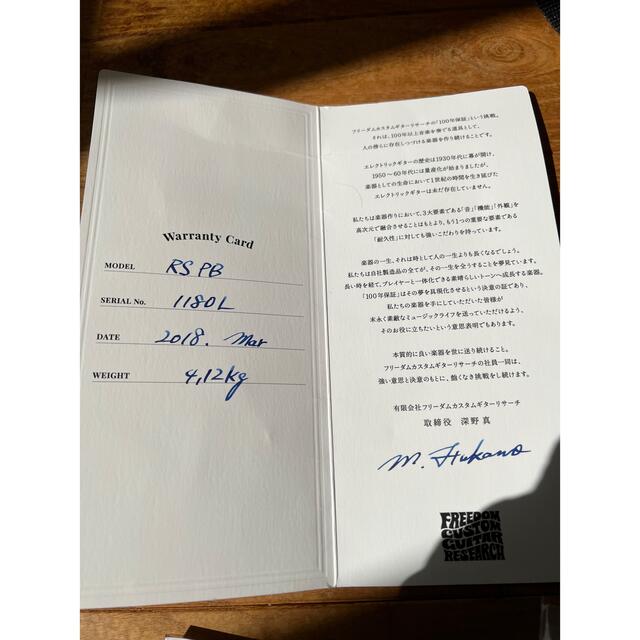 Warranty Card
MODEL RS PB
SERIAL No. 1180L
DATE 2018. Mar
WEIGHT 4,12kg
フリーダムカスタムギターリサーチの「100年保証」という挑戦。
それは、100年以上音楽を奏でる道具として、
人の傍らに存在しつづける楽器を作り続けることです。
エレクトリックギターの歴史は1930年代に幕が開け、
1950～60年代には量産化が始まりましたが、
楽器としての生命において1世紀の時間を生き延びた
エレクトリックギターは未だ存在していません。
私たちは楽器作りにおいて、3大要素である「音」「機能」「外観」を
高次元で融合させることはもとより、もう1つの重要な要素である
「耐久性」に対しても強いこだわりを持っています。
楽器の一生、それは時として人の一生よりも長くなるでしょう。
私たちは自社製造品の全てが、その一生を全うすることを夢見ています。
長い時を経て、プレイヤーと一体化できる素晴らしいトーンへ成長する楽器。
「100年保証」はその夢を具現化させるという決意の証であり、
私たちの楽器を手にしていただいた皆様が
末永く素敵なミュージックライフを送っていただけるよう、
そのお役に立ちたいという意思表明でもあります。
本質的に良い楽器を世に送り続けること。
フリーダムカスタムギターリサーチの社員一同は、
強い意思と決意のもとに、飽くなき挑戦をし続けます。
有限会社フリーダムカスタムギターリサーチ
取締役 深野 真
M. Fukano
FREEDOM
CUSTOM
GUITAR
RESEARCH